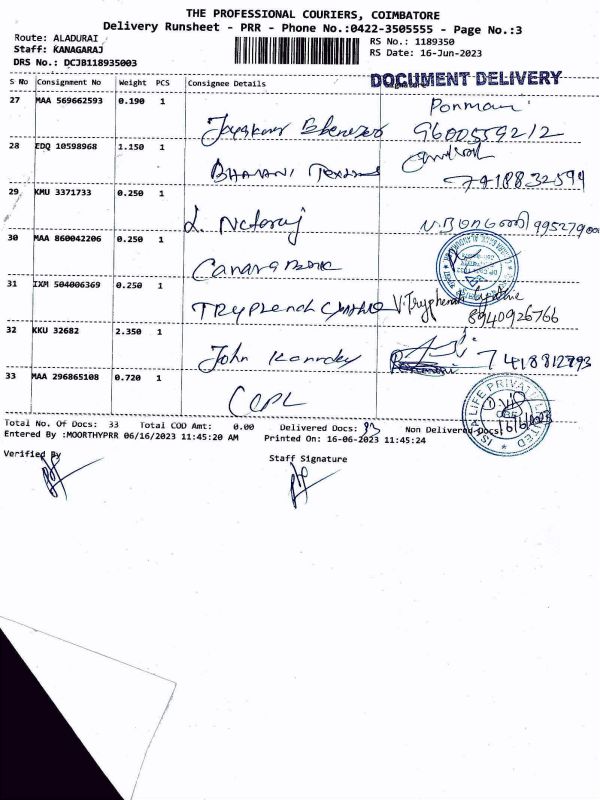 THE PROFESSIONAL COURIERS, COIMBATORE
Delivery Runsheet - PRR - Phone No.:0422-3505555 - Page No.:3
Route: ALADURAI
RS No.: 1189350
Staff: KANAGARAJ
RS Date: 16-Jun-2023
DRS No.: DCJB118935003
DOCUMENT DELIVERY
S No Consignment No Weight PCS Consignee Details
27 MAA 569662593 0.190 1
Ponmani
9600559212
28 EDQ 10598968 1.150 1
BHAVANI
7418832594
29 KMU 3371733 0.250 1
L. Nataraj
30 MAA 860042206 0.250 1
Canara Bank
31 IXM 504006369 0.250 1
Tryphenah
V. Tryphenah
8940926766
32 KKU 32682 2.350 1
John Kennady
7418812793
33 MAA 296865108 0.720 1
CCPL
ISHA LIFE PRIVATE LIMITED
16/6/2023
Total No. Of Docs: 33 Total COD Amt: 0.00 Delivered Docs: 33 Non Delivered Docs:
Entered By :MOORTHYPRR 06/16/2023 11:45:20 AM Printed On: 16-06-2023 11:45:24
Verified By
Staff Signature